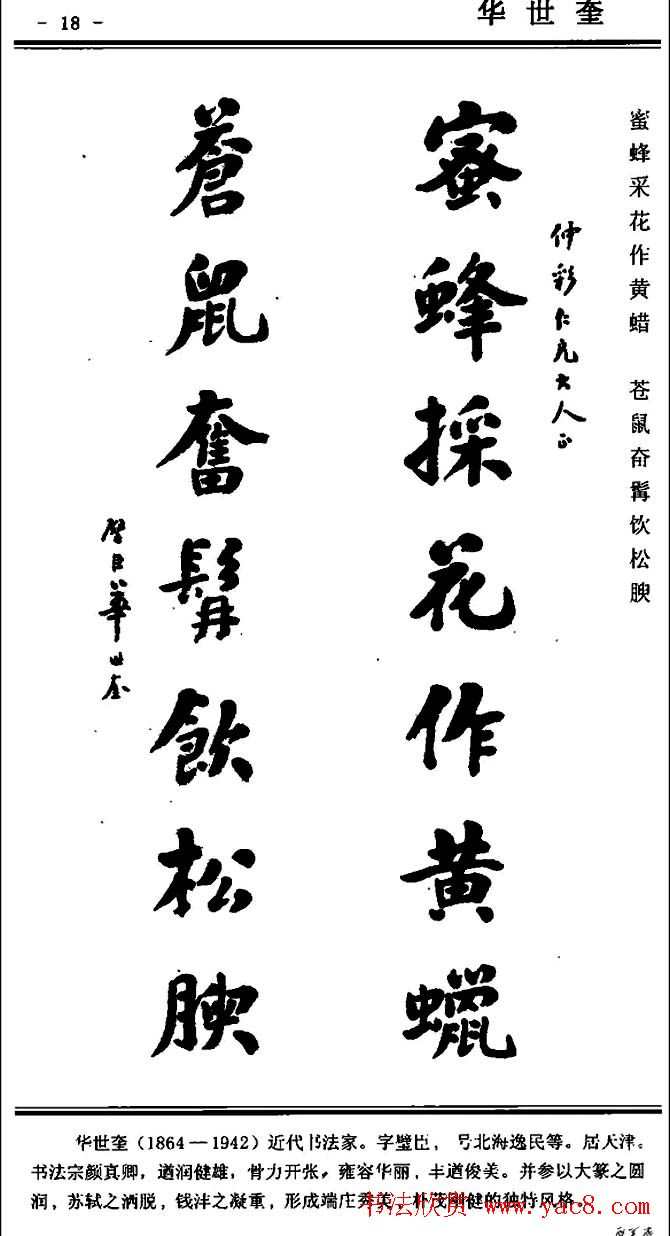 - 18 -
华世奎
蜜蜂采花作黄蜡 苍鼠奋髯饮松腴
仲彩仁兄大人正
蜜蜂採花作黄蠟
蒼鼠奮髯飲松腴
璧臣華世奎
华世奎（1864—1942）近代书法家。字璧臣，号北海逸民等。居天津。
书法宗颜真卿，遒润健雄，骨力开张，雍容华丽，丰遒俊美。并参以大篆之圆
润，苏轼之洒脱，钱沣之凝重，形成端庄秀美，朴茂刚健的独特风格。
书法欣赏 www.yac8.com